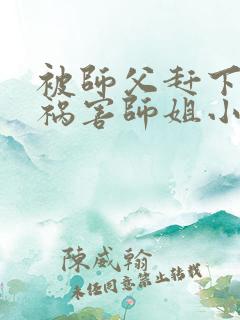 被師父赶下
祸害師姐小
陳威翰
未经同意禁止转载